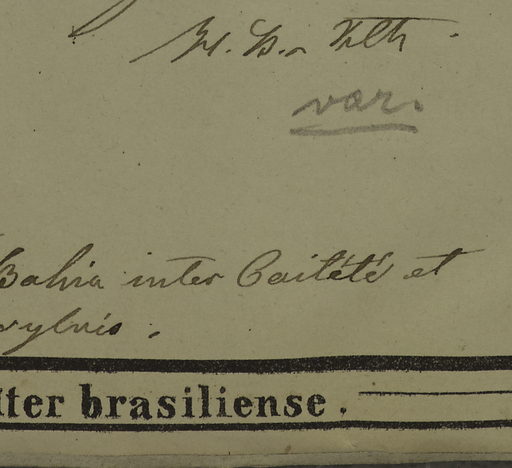 var.
Bahia inter Caitété et
sylvis.
tter brasiliense.